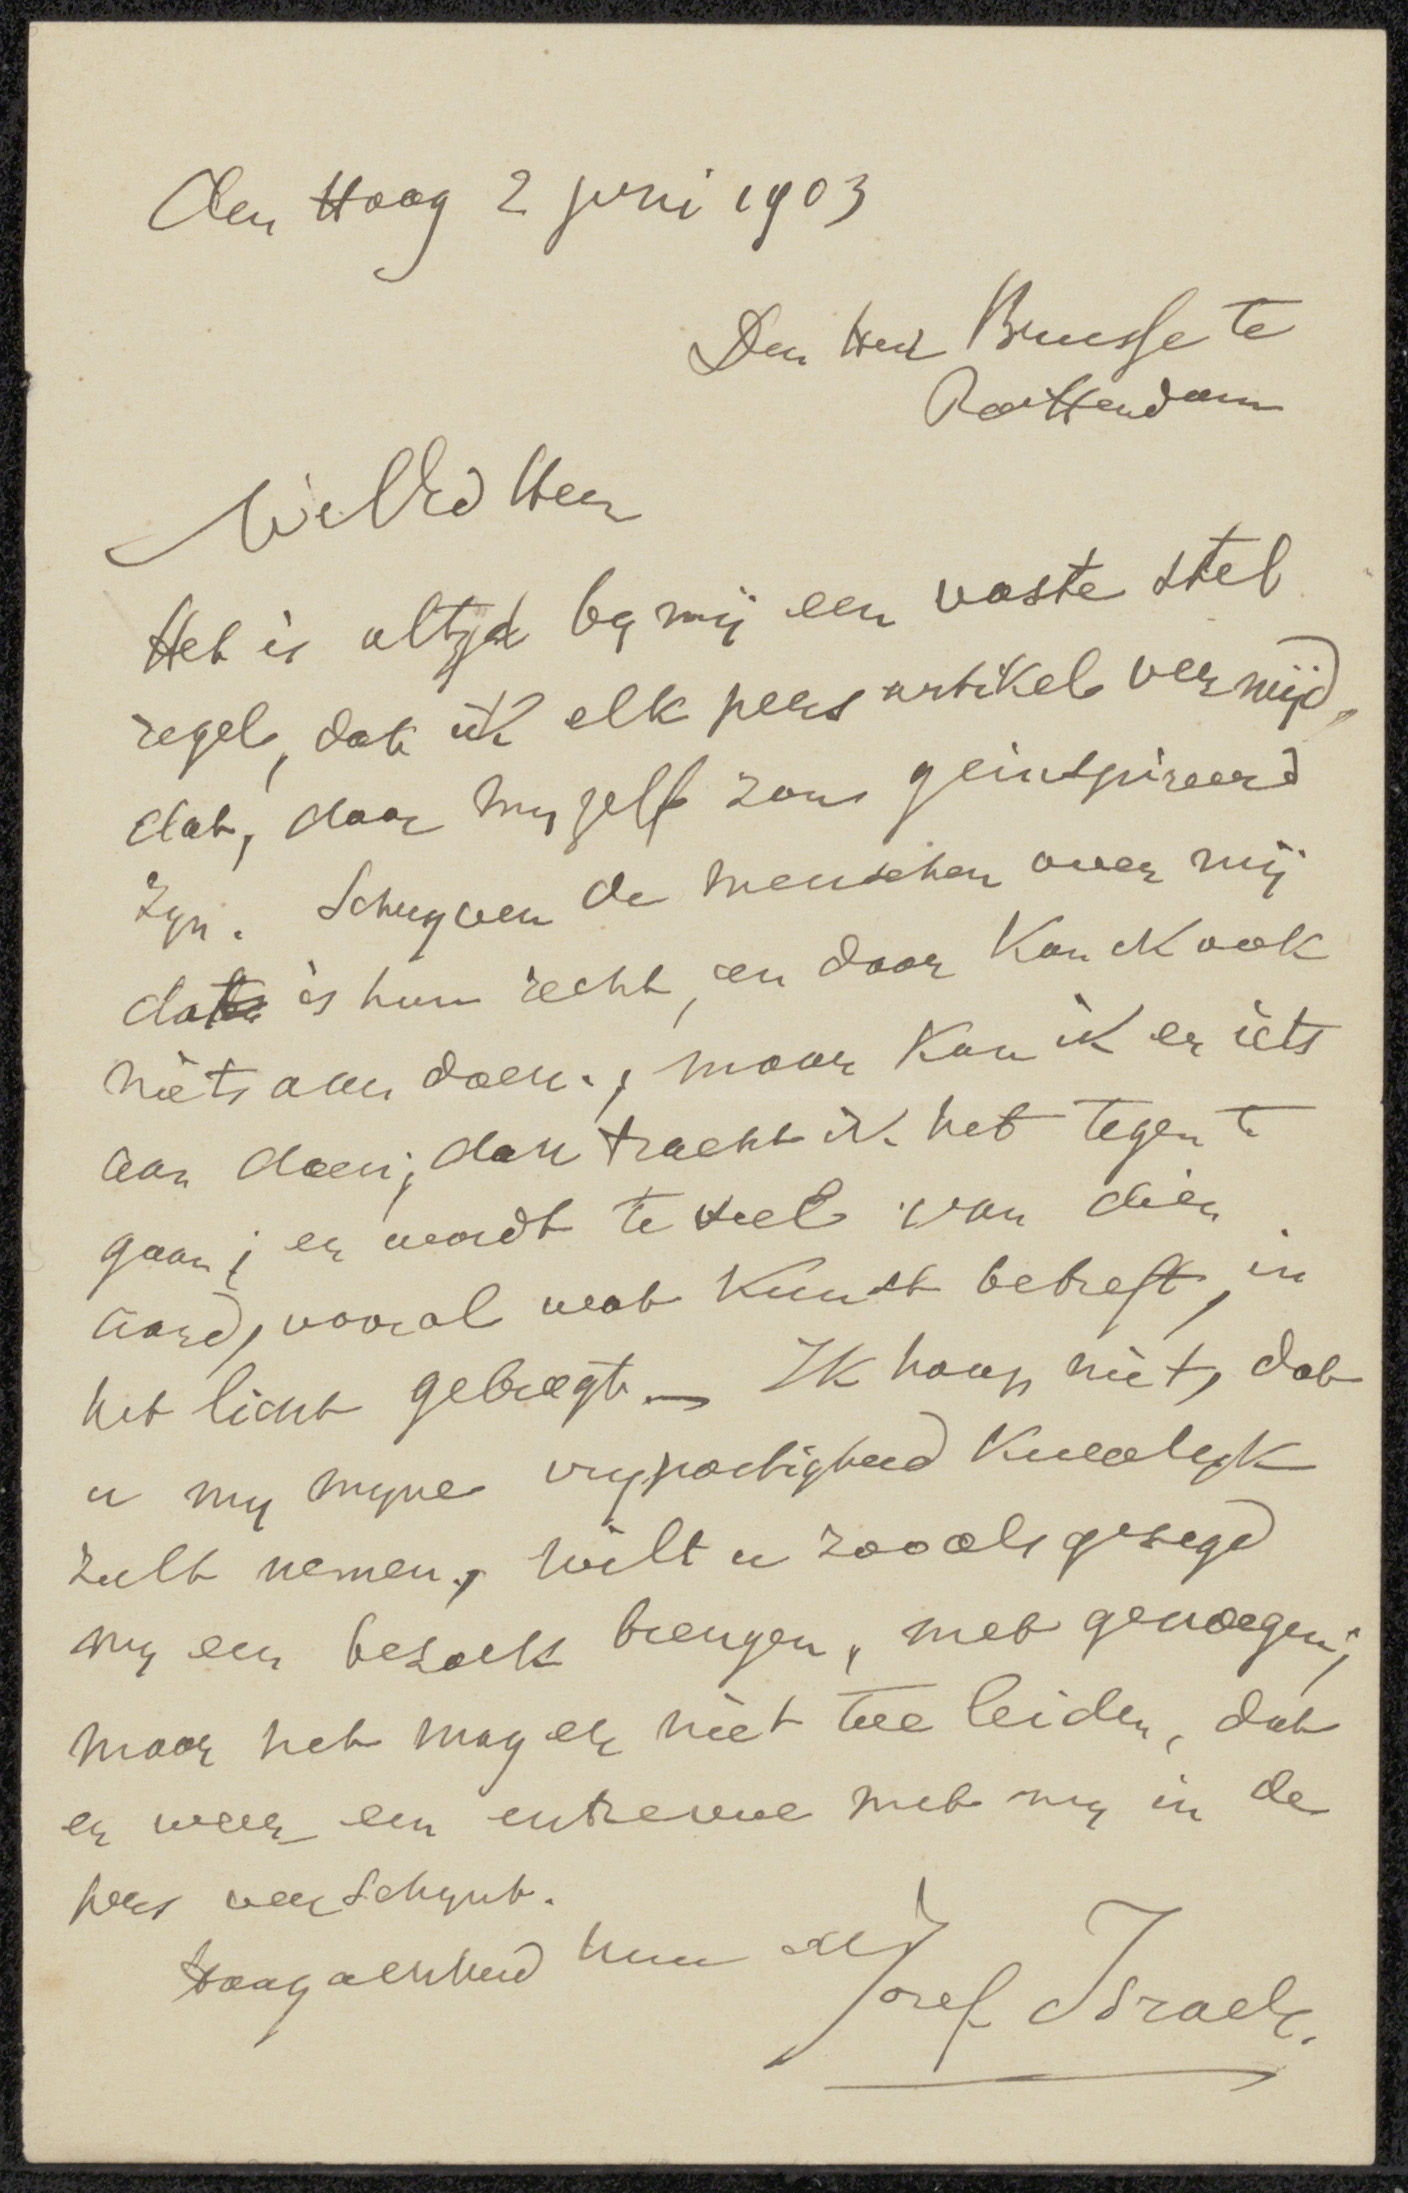 Den Haag 2 juni 1903
Den Heer Brusse te
Rotterdam
WelEd Heer
Het is altyd by mij een vaste stel
regel, dat ik elk pers artikel vermijd,
dat, door myzelf zou geinspireerd
zyn. Schryven de menschen over mij
dat is hun recht, en daar kan ik ook
niets aan doen., maar kan ik er iets
aan doen; dan tracht ik het tegen te
gaan; er wordt te veel van dien
aard, vooral wat kunst betreft, in
het licht gebragt._ Ik hoop niet, dat
u my myne vrypostigheid kwalyk
zult nemen., wilt u zooals gezegd
my een bezoek brengen, met genoegen;
maar het mag er niet toe leiden, dat
er weer een entrevue met my in de
pers verschynt.
Hoogachtend
Jozef Israels.